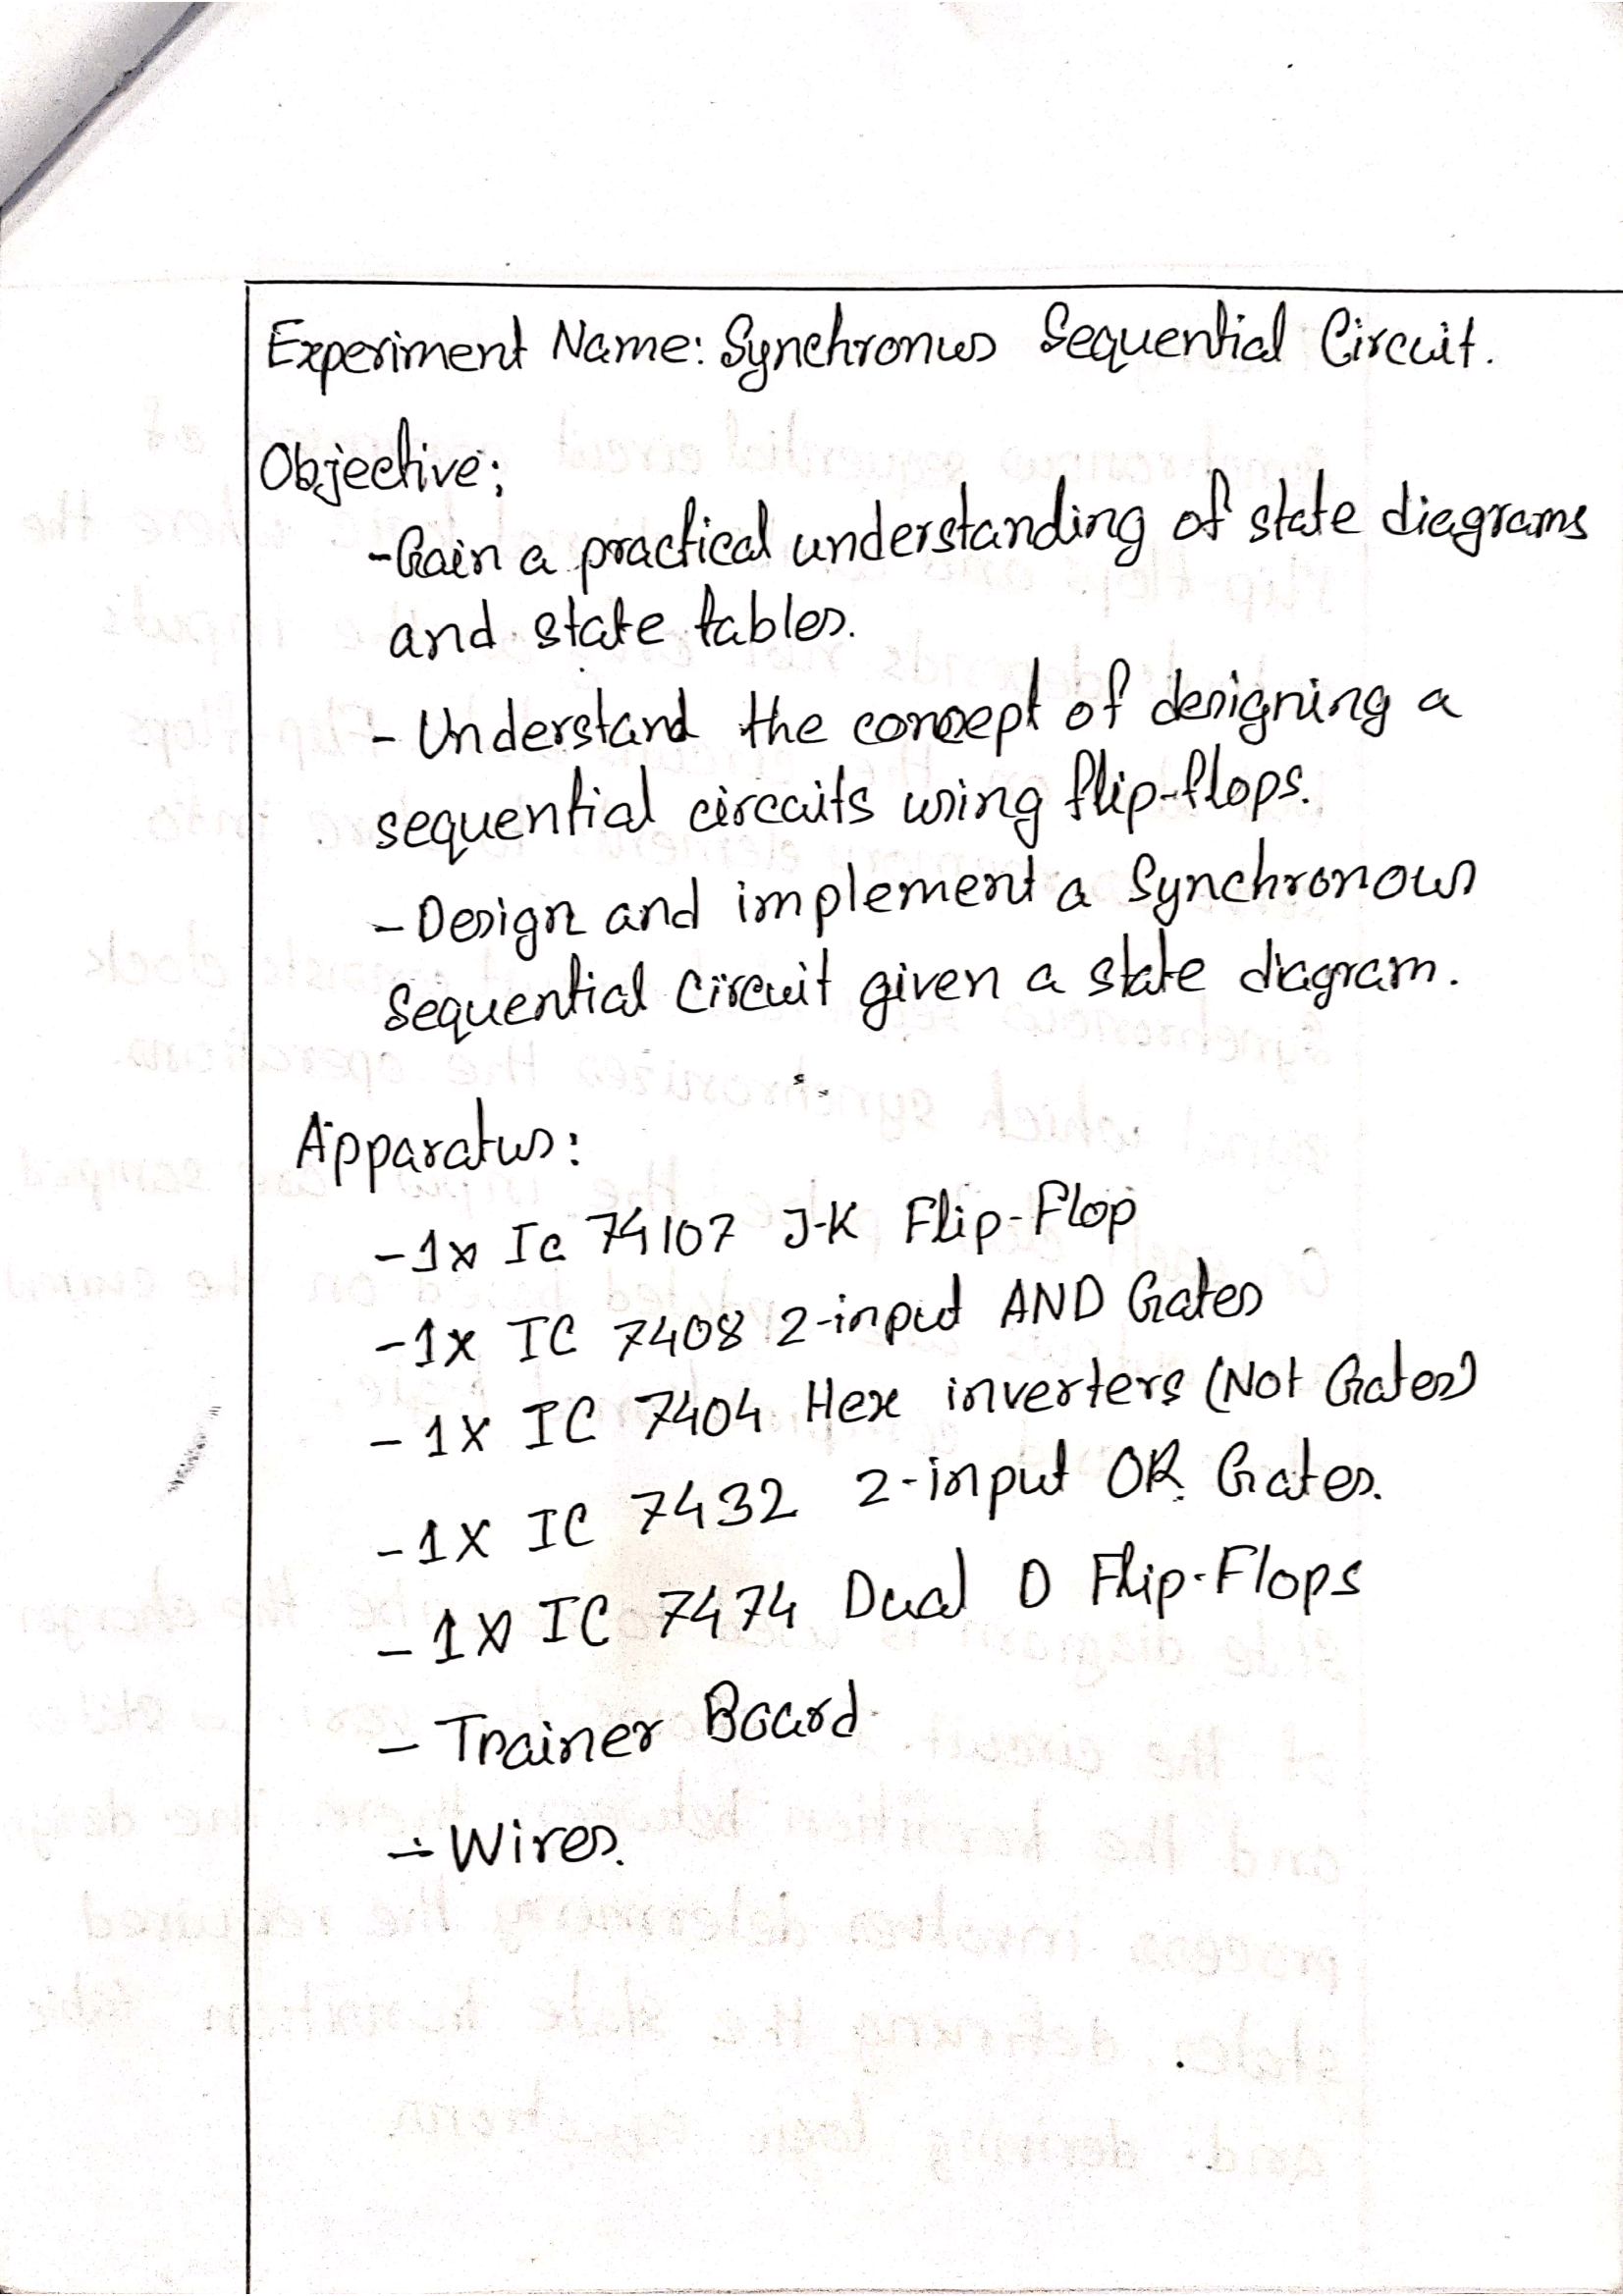 Experiment Name: Synchronus Sequential Circuit.
Objective;
-Gain a practical understanding of state diagrams
and state tables.
- Understand the concept of designing a
sequential circuits using flip-flops.
- Design and implement a Synchronous
Sequential Circuit given a state diagram.
Apparatus:
-1x Ic 74107 J-K Flip-Flop
-1x IC 7408 2-input AND Gates
- 1X IC 7404 Hex inverters (Not Gates)
-1X IC 7432 2-input OR Gates.
- 1X IC 7474 Dual D Flip-Flops
- Trainer Board
- Wires.